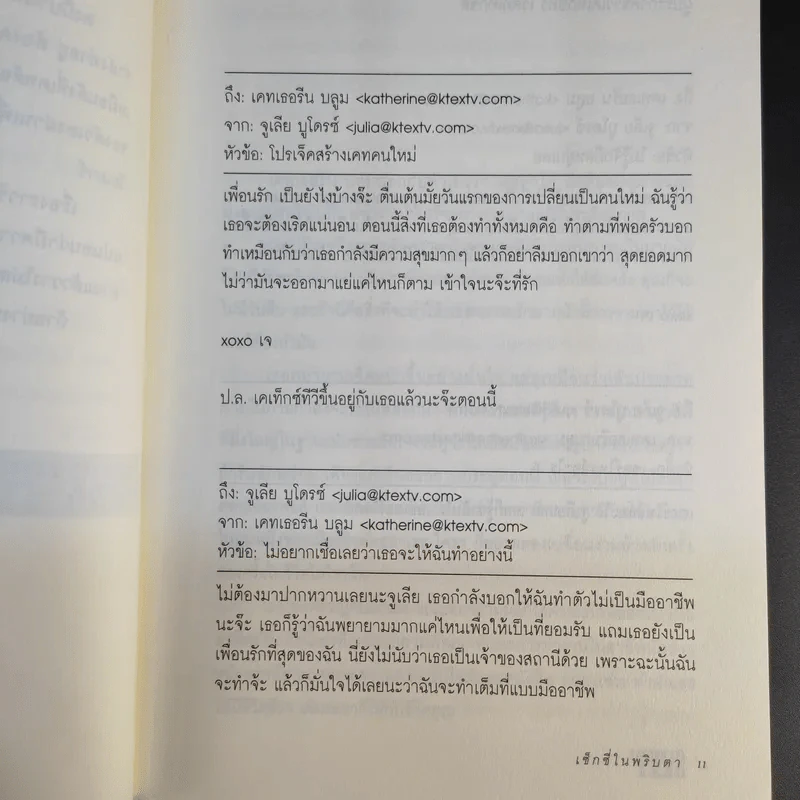 ถึง: เคทเธอรีน บลูม <katherine@ktextv.com>
จาก: จูเลีย บูโดรซ์ <julia@ktextv.com>
หัวข้อ: โปรเจ็คสร้างเคทคนใหม่
เพื่อนรัก เป็นยังไงบ้างจ๊ะ ตื่นเต้นมั้ยวันแรกของการเปลี่ยนเป็นคนใหม่ ฉันรู้ว่า
เธอจะต้องเริดแน่นอน ตอนนี้สิ่งที่เธอต้องทำทั้งหมดคือ ทำตามที่พ่อครัวบอก
ทำเหมือนกับว่าเธอกำลังมีความสุขมากๆ แล้วก็อย่าลืมบอกเขาว่า สุดยอดมาก
ไม่ว่ามันจะออกมาแย่แค่ไหนก็ตาม เข้าใจนะจ๊ะที่รัก
xoxo เจ
ป.ล. เคเท็กซ์ทีวีขึ้นอยู่กับเธอแล้วนะจ๊ะตอนนี้
ถึง: จูเลีย บูโดรซ์ <julia@ktextv.com>
จาก: เคทเธอรีน บลูม <katherine@ktextv.com>
หัวข้อ: ไม่อยากเชื่อเลยว่าเธอจะให้ฉันทำอย่างนี้
ไม่ต้องมาปากหวานเลยนะจูเลีย เธอกำลังบอกให้ฉันทำตัวไม่เป็นมืออาชีพ
นะจ๊ะ เธอก็รู้ว่าฉันพยายามมากแค่ไหนเพื่อให้เป็นที่ยอมรับ แถมเธอยังเป็น
เพื่อนรักที่สุดของฉัน นี่ยังไม่นับว่าเธอเป็นเจ้าของสถานีด้วย เพราะฉะนั้นฉัน
จะทำจ้ะ แล้วก็มั่นใจได้เลยนะว่าฉันจะทำเต็มที่แบบมืออาชีพ
เซ็กซี่ในพริบตา 11